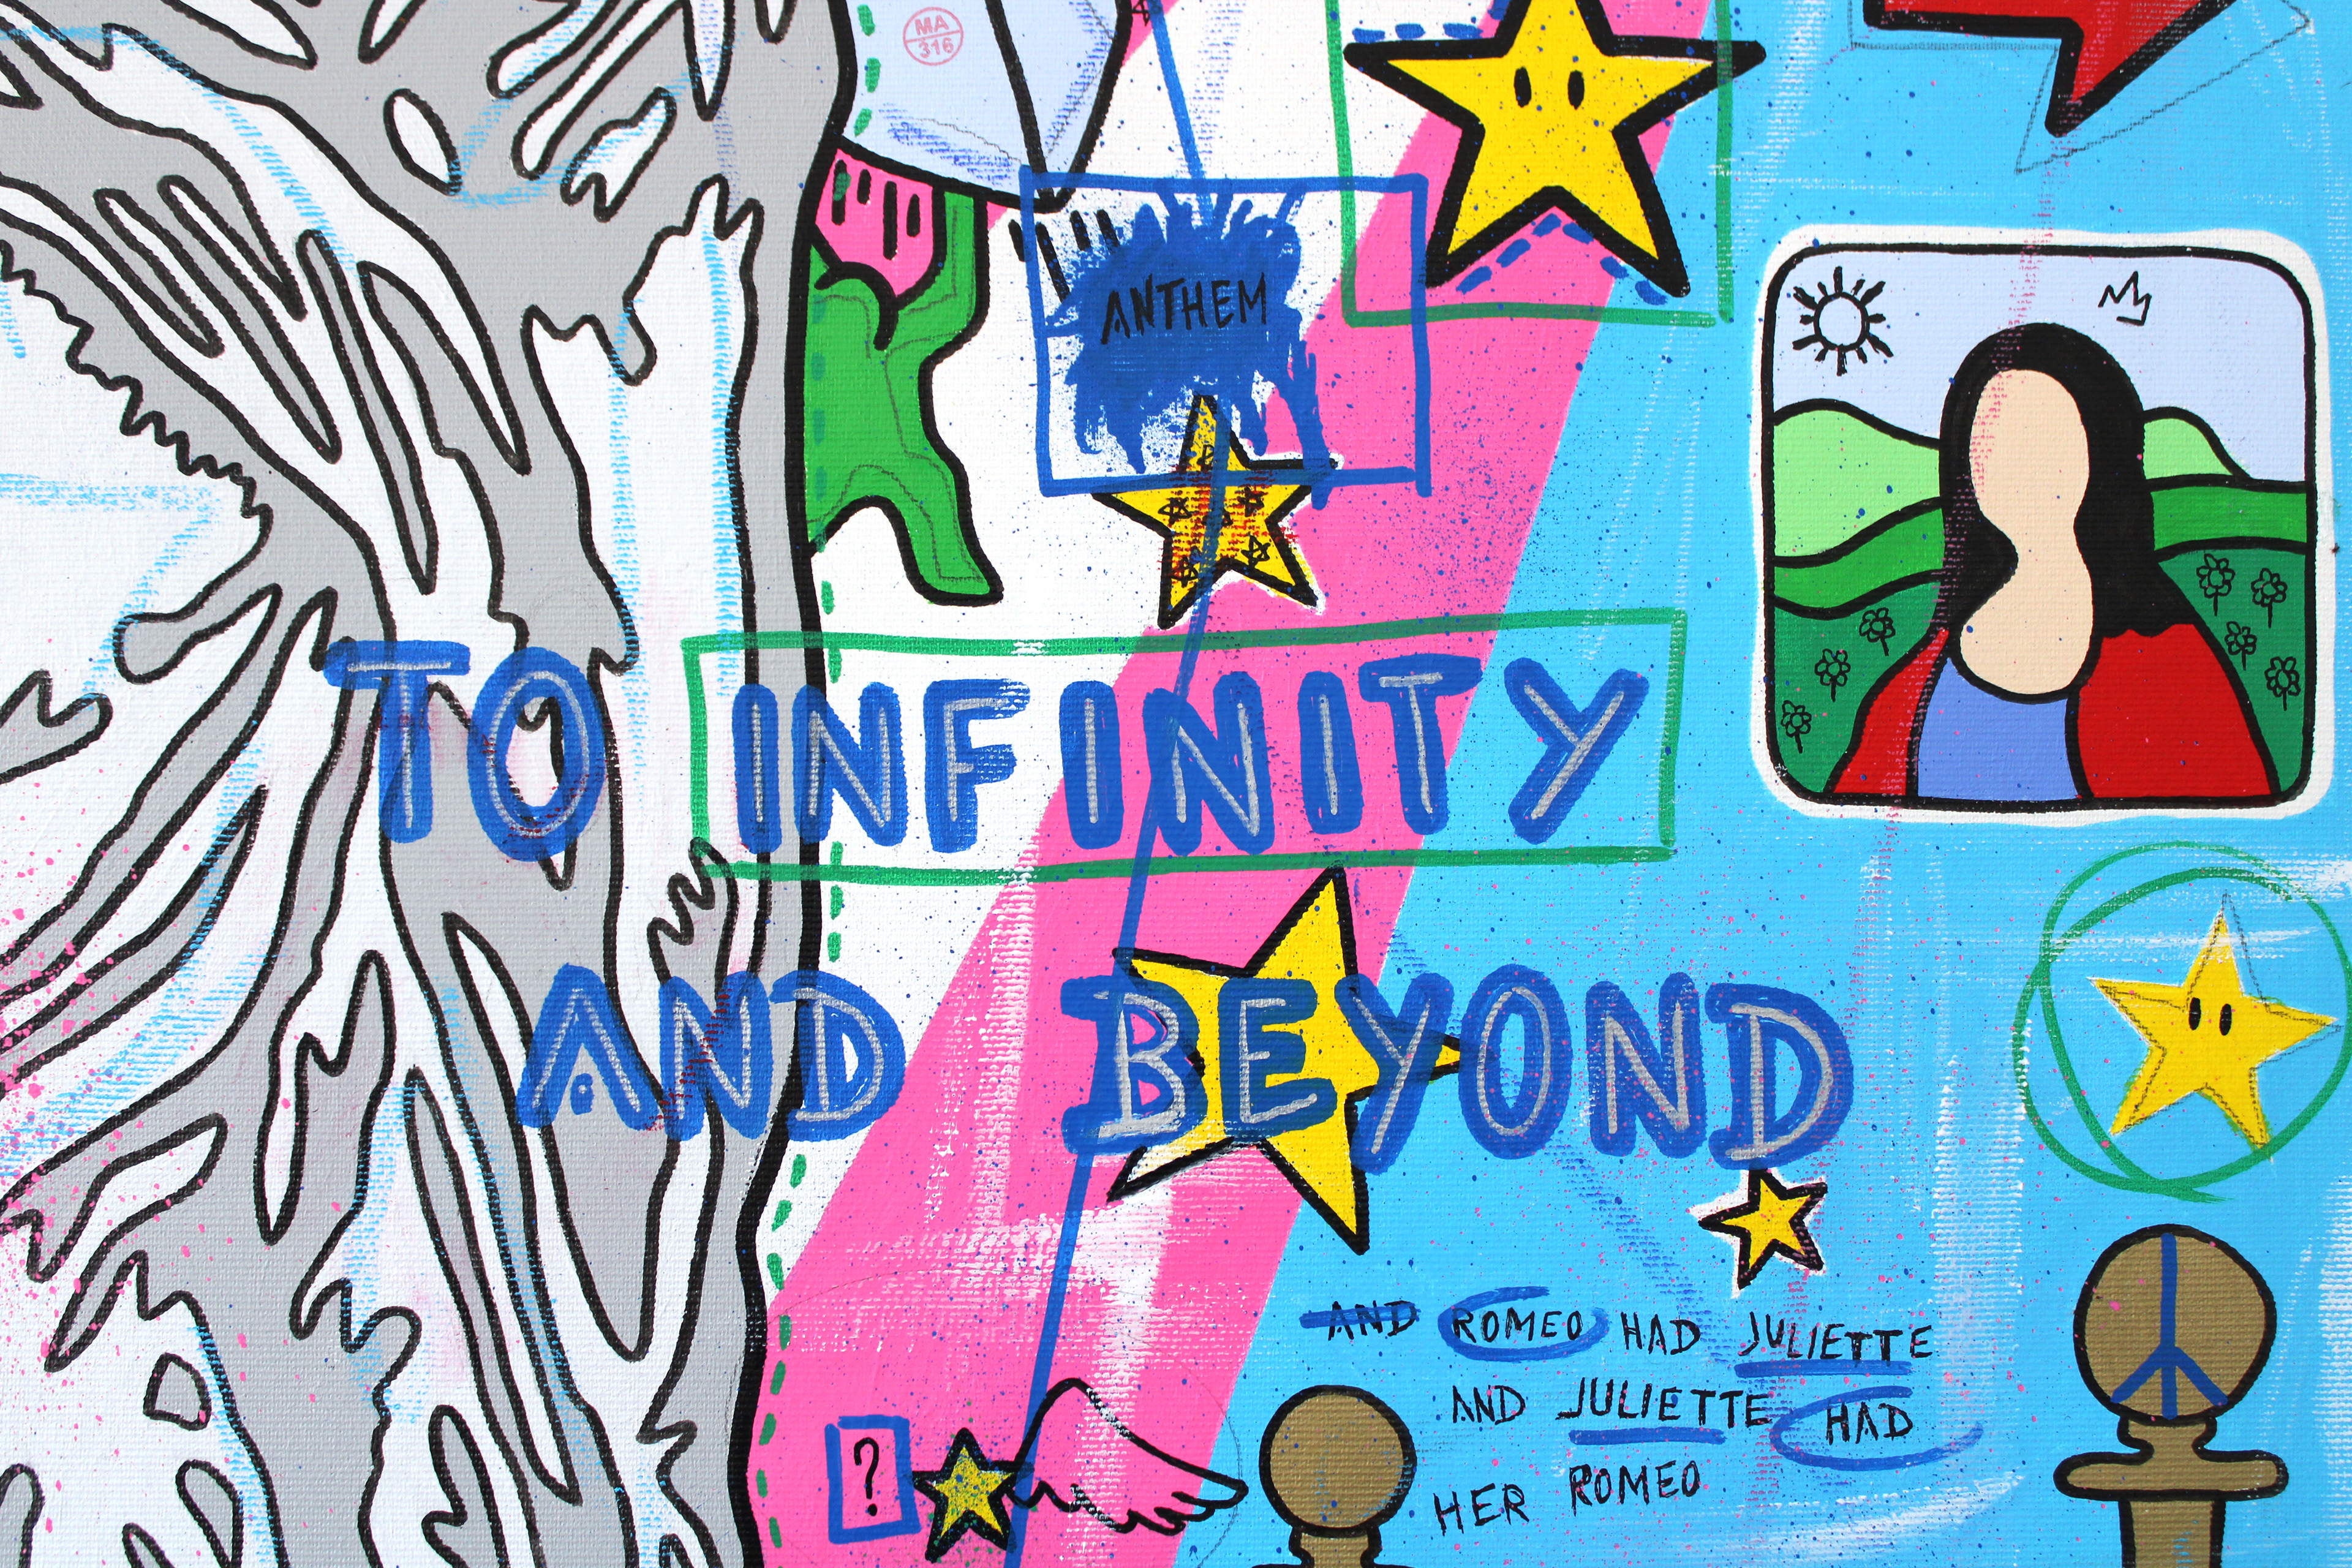 MA
316
ANTHEM
TO INFINITY
AND BEYOND
AND ROMEO HAD JULIETTE
AND JULIETTE HAD
HER ROMEO
?